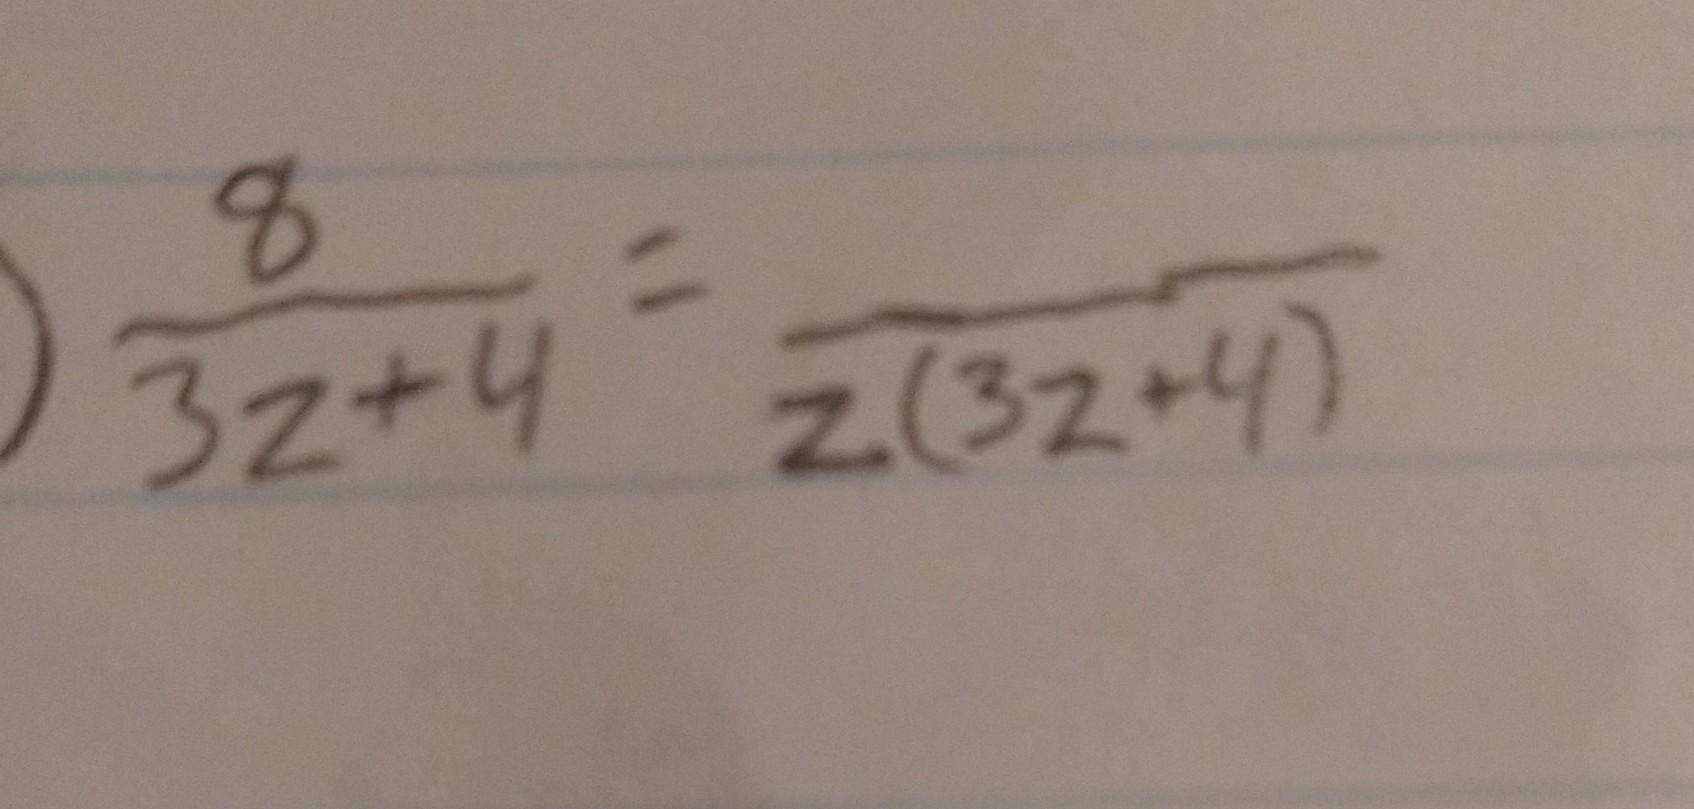 ) 8/(3z+4) = /(z(3z+4))